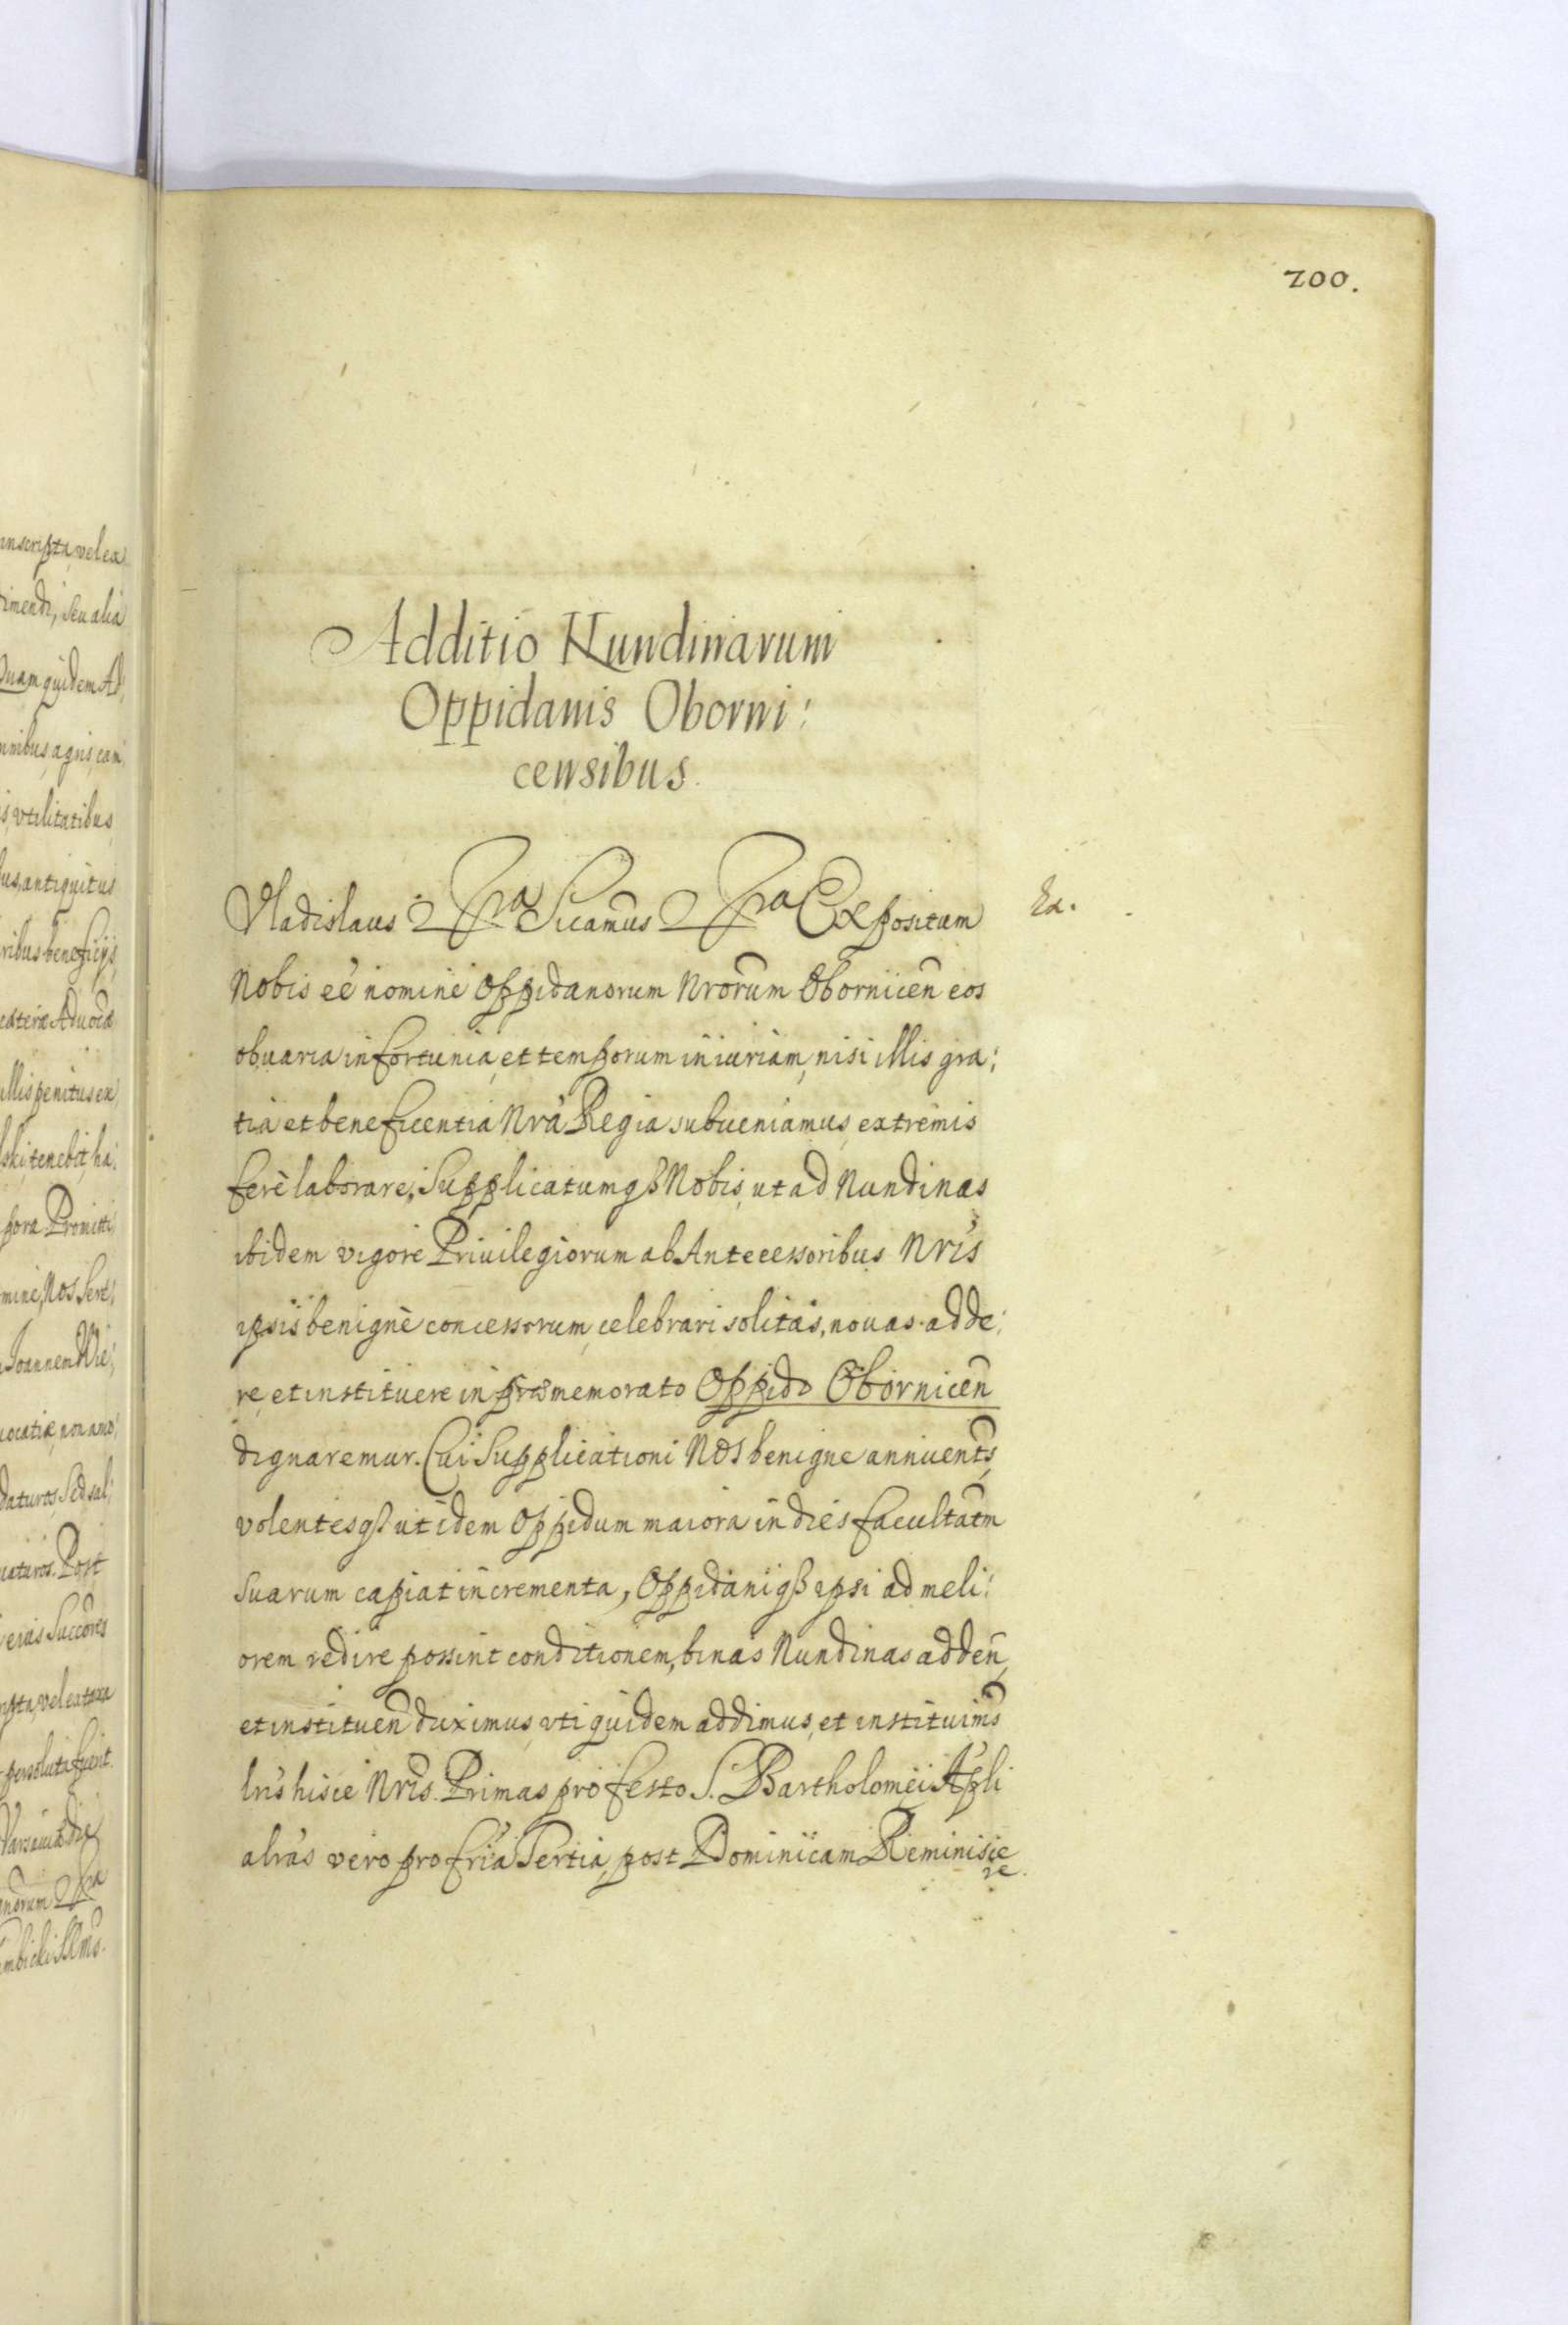 200.
Additio Nundinarum
Oppidanis Oborni:
censibus.
Vladislaus etc. Sicamus etc. Expositum
Ex.
Nobis eē nomine Oppidanorum Nrorum Obornicen eos
ob varia infortunia, et temporum iniuriam, nisi illis gra:
tia et beneficentia Nra Regia subueniamus, extremis
ferè laborare, Supplicatumq3 Nobis, ut ad Nundinas
ibidem vigore Priuilegiorum ab Antecessoribus Nris
ipsis benignè concessorum, celebrari solitas, nouas adde:
re, et instituere in præmemorato Oppido Obornicen
dignaremur. Cui Supplicationi Nos benigne annuents,
volentesq3 ut idem Oppidum maiora in dies facultatm
suarum capiat incrementa, Oppidaniq3 ipsi ad meli:
orem redire possint conditionem, binas Nundinas adden,
et instituen duximus, vti quidem addimus, et instituims
lris hisce Nris. Primas pro festo S. Bartholomęi Apli
alras vero pro fria Tertia, post Dominicam Reminisce
re.
inscripta, vel ex
imendi, seu alia
Quam quidem Ad,
omnibus, agris, cam
is, vtilitatibus,
us, antiquitus
ribus beneficijs
cæteræ Aduocā
illis penitus ex
lski tenebit, ha:
pora. Promitti
mine, Nos Sere:
Ioannem Wie:
uocatiæ, non amo:
daturos, Sed sal:
uaturos. Post
eius Succores
ripta, vel extaxa
persoluti fuerit.
Varsauiæ die
gnorum etc.
mbicki SRMs.